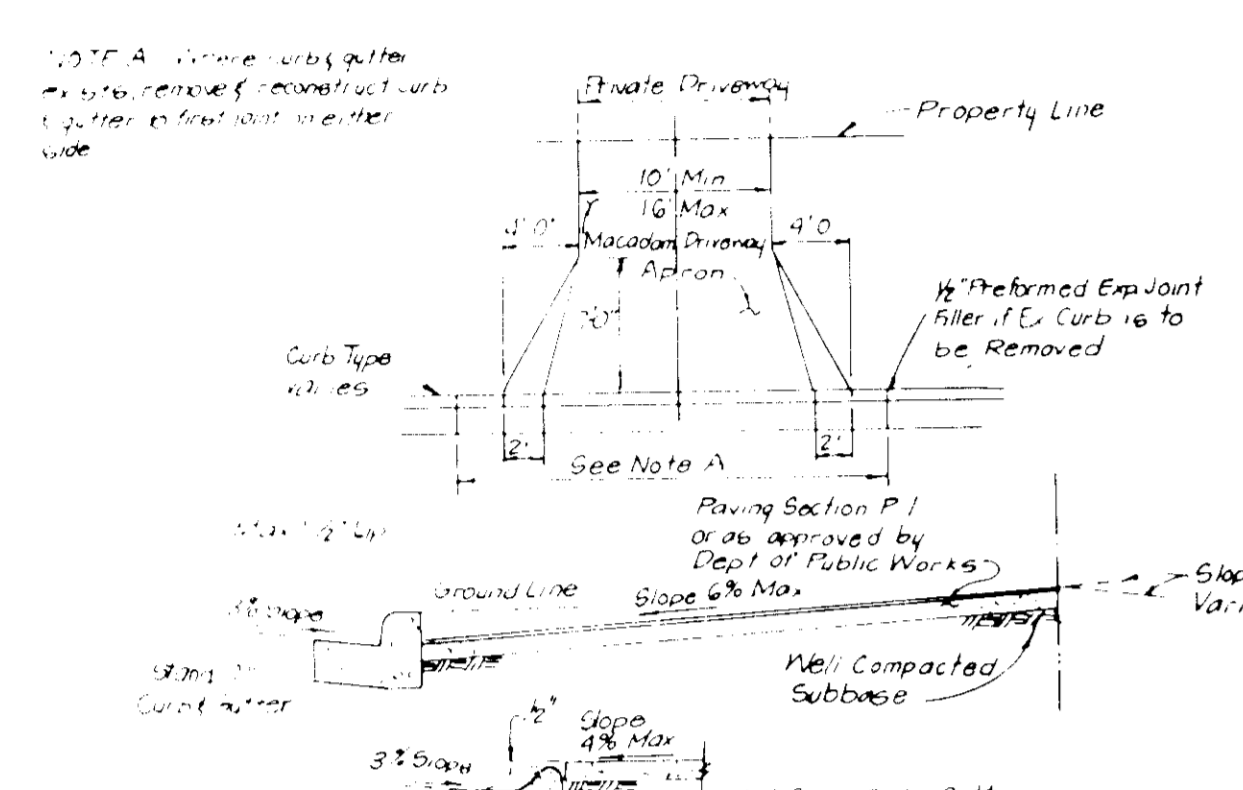 NOTE A Where curb & gutter
exists, remove & reconstruct curb
& gutter to first joint on either
side
Private Driveway
Property Line
10' Min
16' Max
4'0"
4'0
Macadam Driveway
Apron
1/2" Preformed Exp Joint
Filler if Ex Curb is to
be Removed
Curb Type
varies
2'
2'
See Note A
Max 1/2" Lip
Paving Section P 1
or as approved by
Dept of Public Works
Ground Line
Slope 6% Max
Slope
Curb & Gutter
Well Compacted
Subbase
1/2"
Slope
4% Max
3% Slope